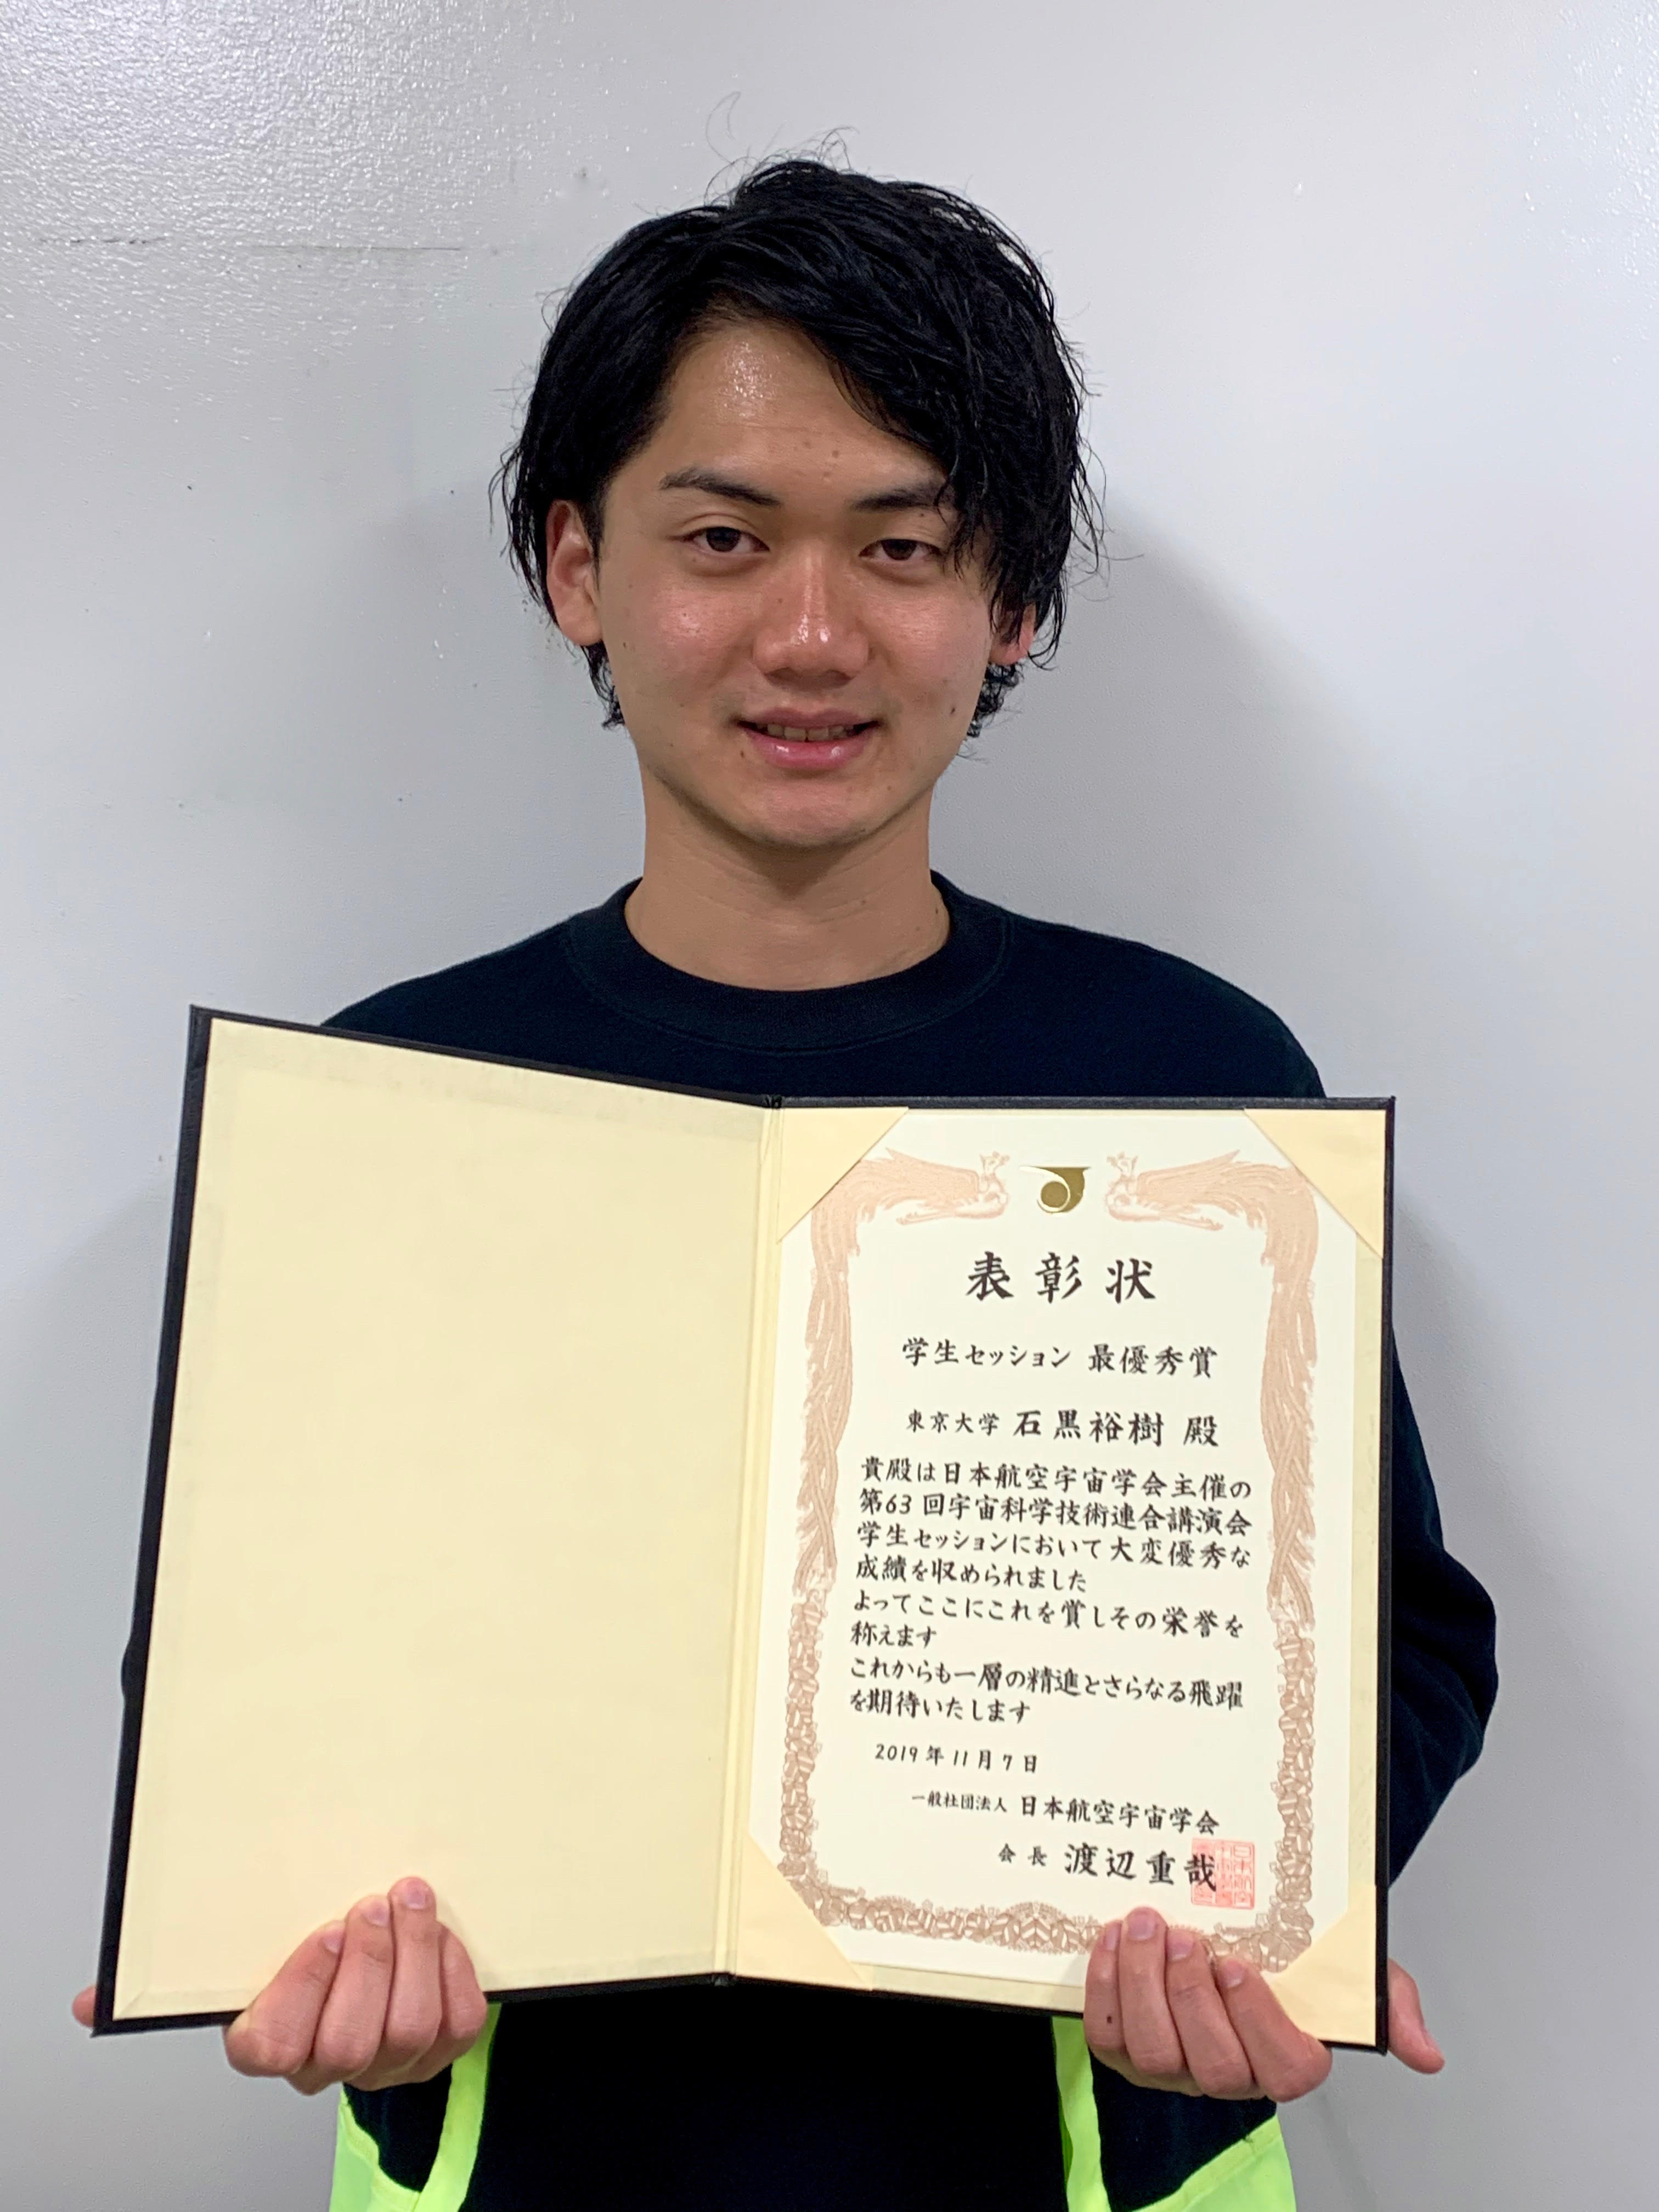 表彰状
学生セッション 最優秀賞
東京大学 石黒裕樹 殿
貴殿は日本航空宇宙学会主催の
第63回宇宙科学技術連合講演会
学生セッションにおいて大変優秀な
成績を収められました
よってここにこれを賞しその栄誉を
称えます
これからも一層の精進とさらなる飛躍
を期待いたします
2019年11月7日
一般社団法人 日本航空宇宙学会
会長 渡辺重哉